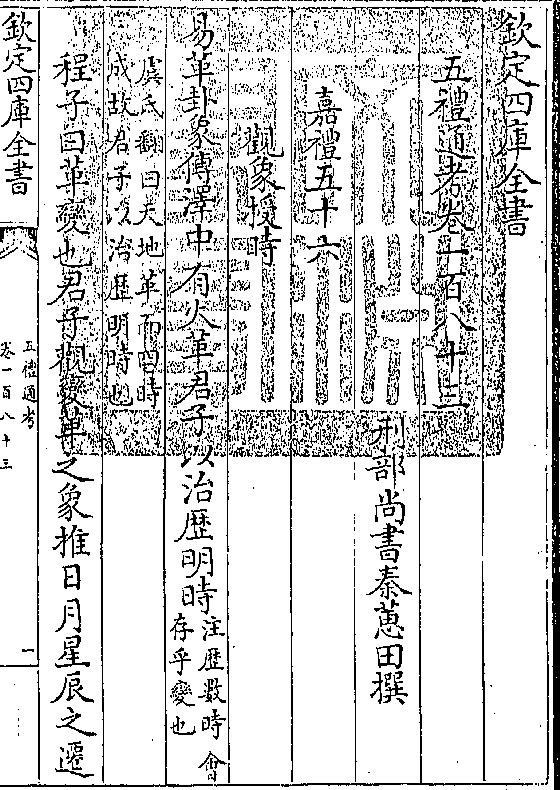 欽定四庫全書
五禮通考卷一百八十三
刑部尚書秦蕙田撰
嘉禮五十六
觀象授時
易革卦象傳澤中有火革君子以治歴明時注歴數時會
存乎變也
虞氏翻曰天地革而四時
成故君子以治歴明時也
程子曰革變也君子觀變革之象推日月星辰之遷
欽定四庫全書
五禮通考
卷一百八十三
一